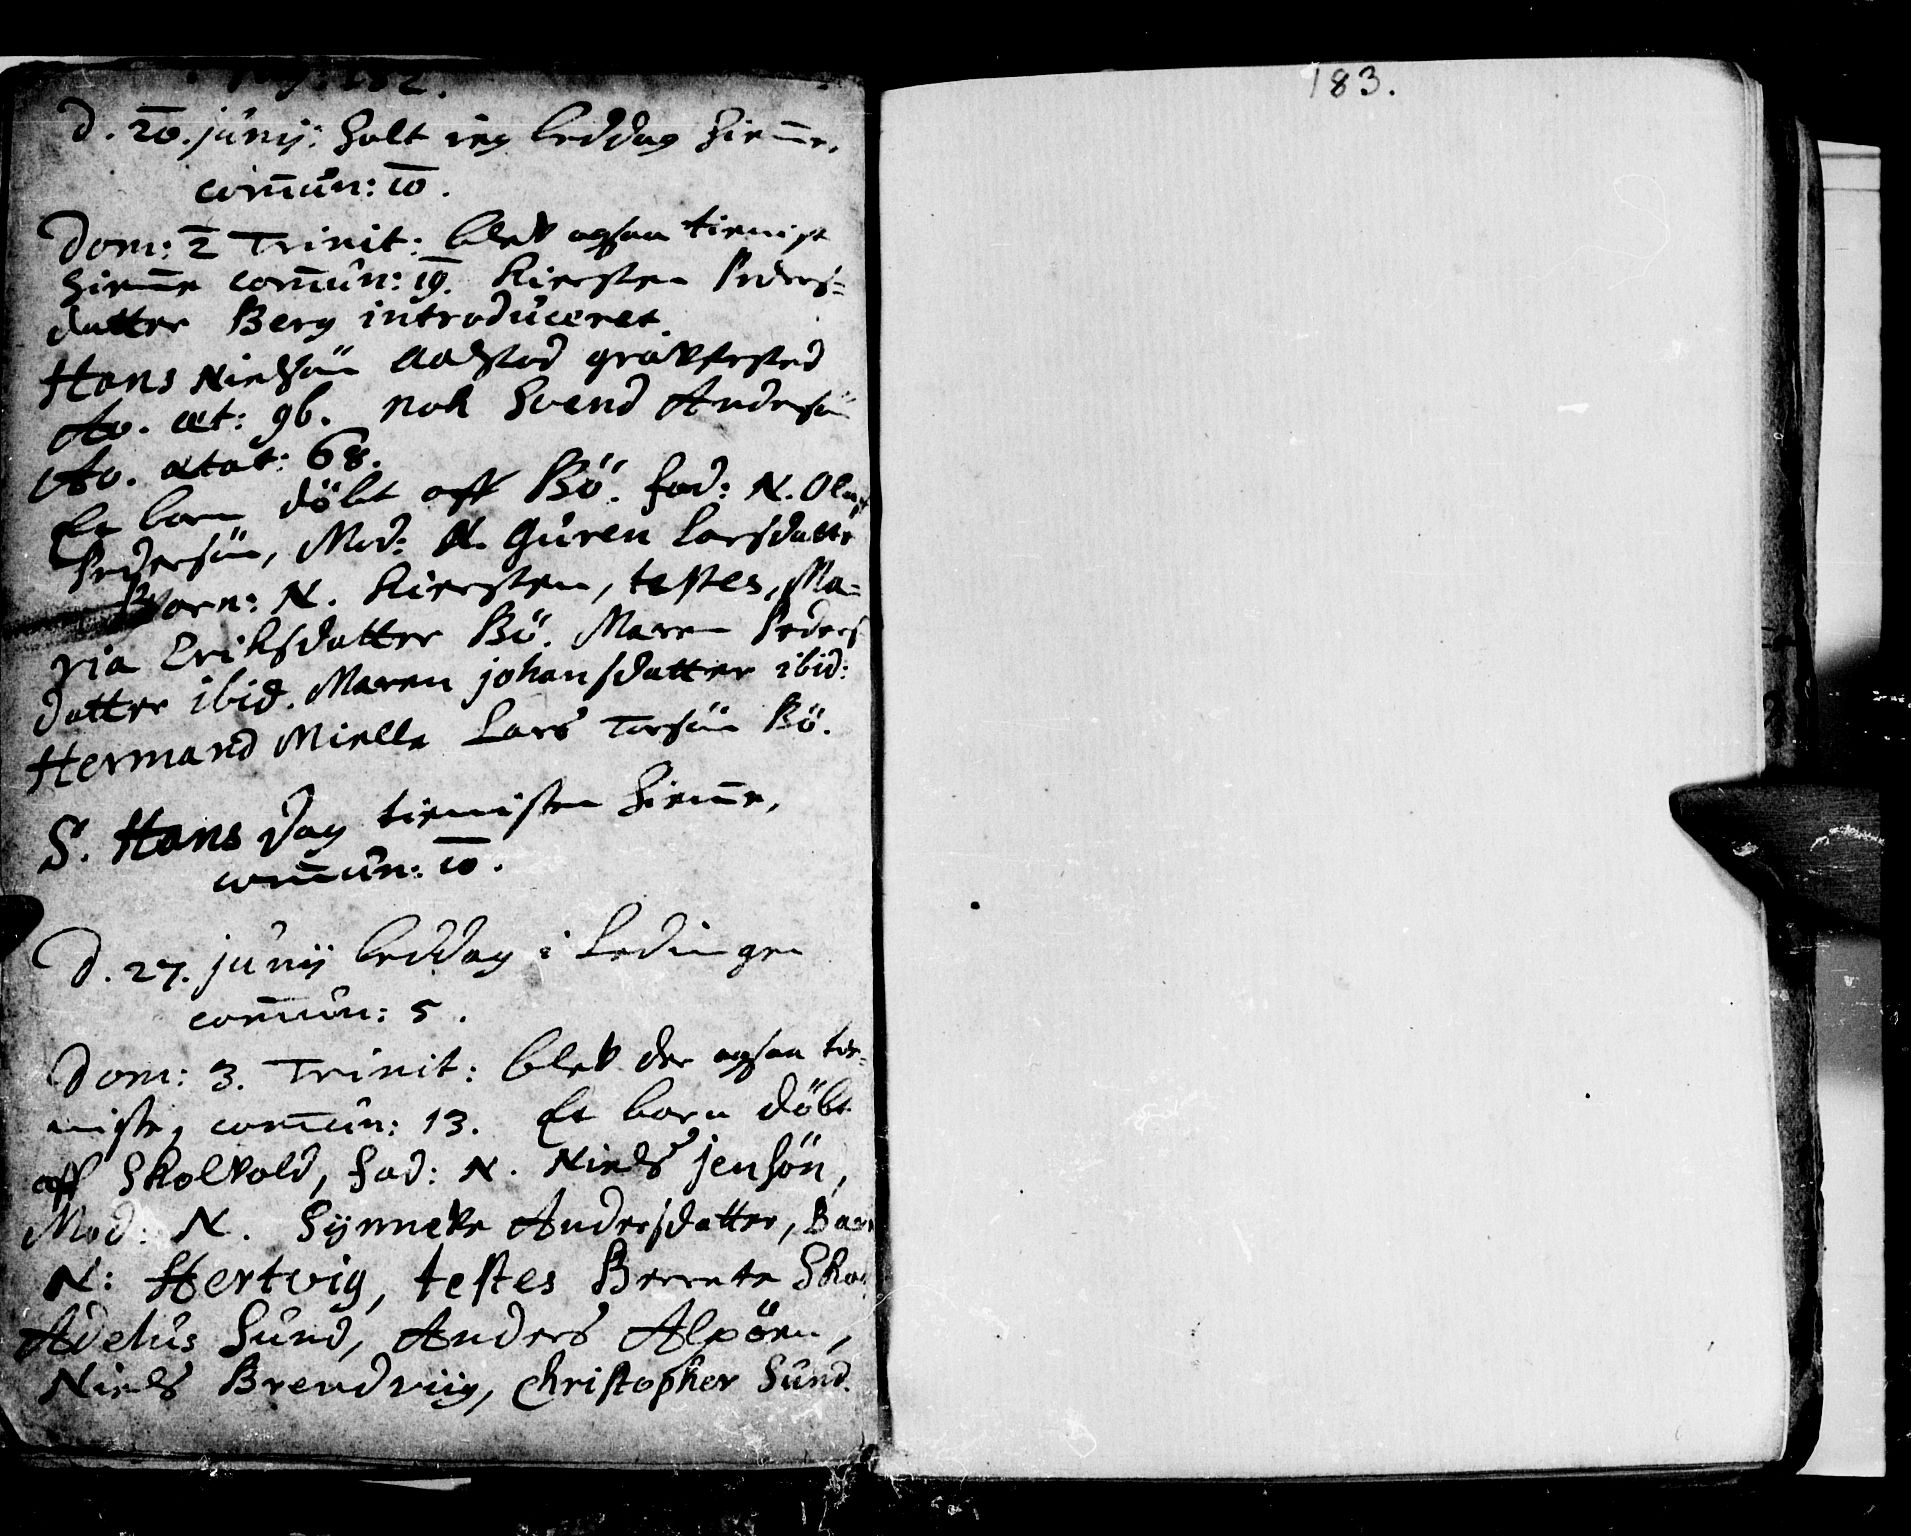 Pag: 182.
d. 20. junij: holt ieg beddag hiem̄e.
com̄un: 10.
Dom: 2 Trinit: blev ogsaa tienist
hiem̄e com̄un: 19. Kiersten Peders=
datter Berg introduceret.
Hans Nielsön Aalstad gravfested
Ao. æt: 96. nok Svend Andersön
Ao. ætat: 68.
Et barn döbt aff Bö. fad: N. Oluf
Pedersön, Mod: N. Guren Larsdatter
Barn: N. Kiersten, testes, Ma=
ria Eriksdatter Bö. Maren Peders
datter ibid. Maren johansdatter ibid:
Hermand Mielle Lars Torsön Bö.
S. Hans dag tienisten hiem̄e,
com̄un: 10.
D. 27. junij beddag i Lödingen
com̄un: 5.
Dom: 3. Trinit: blev der ogsaa tie=
niste, com̄un: 13. Et barn döbt
aff Skolvold, fad: N. Niels jensön,
Mod: N. Synneve Andersdatter, Barn
N: Hertvig, testes Berrete
Adelus Sund, Anders Alpöen,
Niels Brendviig, Christopher Sund.
183.